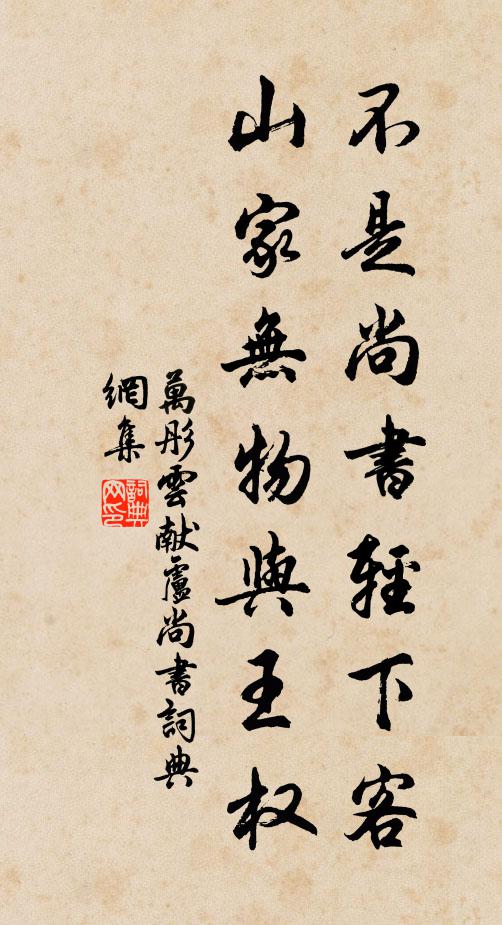 不是尚書輕下客
山家無物與王权
萬彤雲献盧尚書詞典
網集
詞典
网印